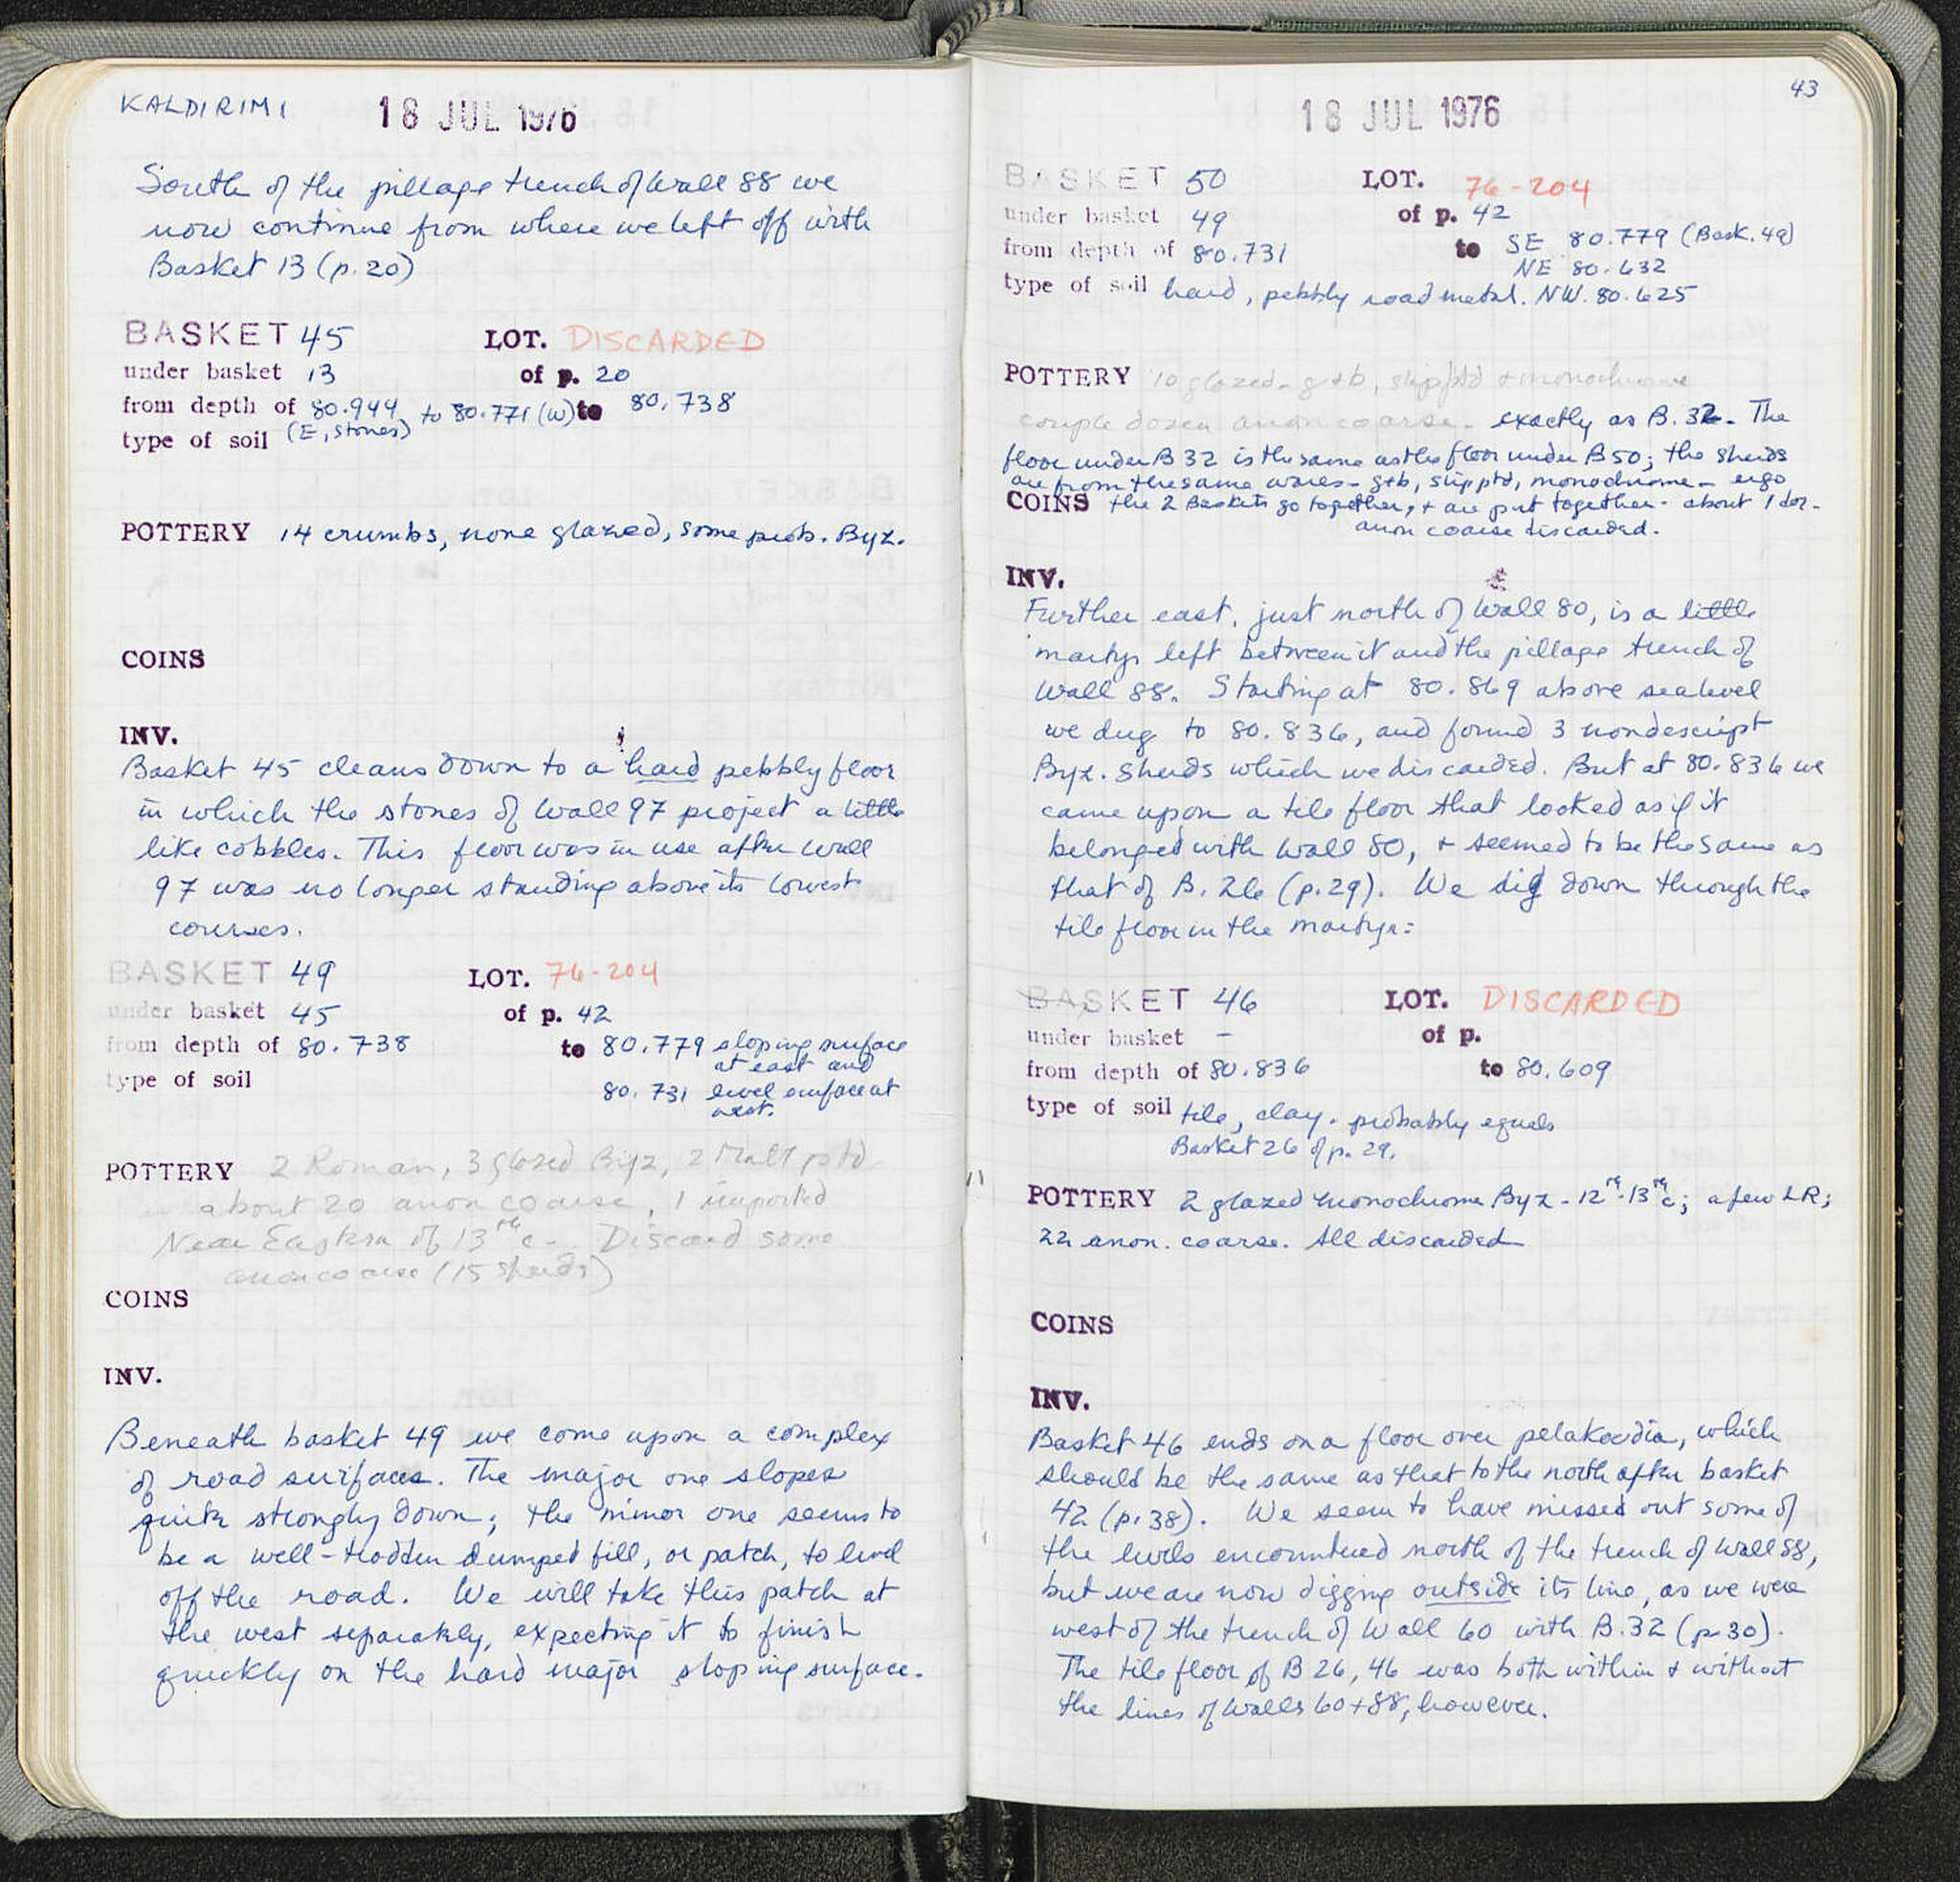 KALDIRIMI
18 JUL 1976
South of the pillage trench of Wall 88 we
now continue from where we left off with
Basket 13 (p. 20)
BASKET 45 LOT. DISCARDED
under basket 13 of p. 20
from depth of 80.944 to 80.771 (W) to 80.738
(E, stones)
type of soil
POTTERY 14 crumbs, none glazed, some prob. Byz.
COINS
INV.
Basket 45 cleans down to a hard pebbly floor
in which the stones of Wall 97 project a little
like cobbles. This floor was in use after wall
97 was no longer standing above its lowest
courses.
BASKET 49 LOT. 76-204
under basket 45 of p. 42
from depth of 80.738 to 80.779 sloping surface
at east and
type of soil 80.731 level surface at
west.
POTTERY 2 Roman, 3 glazed Byz, 2 Matt ptd
about 20 anon coarse, 1 imported
Near Eastern of 13th c. Discard some
anon coarse (15 sherds)
COINS
INV.
Beneath basket 49 we come upon a complex
of road surfaces. The major one slopes
quite strongly down; the minor one seems to
be a well-trodden dumped fill, or patch, to level
off the road. We will take this patch at
the west separately, expecting it to finish
quickly on the hard major sloping surface.
43
18 JUL 1976
BASKET 50 LOT. 76-204
under basket 49 of p. 42
from depth of 80.731 to SE 80.779 (Bask. 49)
NE 80.632
type of soil hard, pebbly road metal. NW. 80.625
POTTERY 10 glazed - g+b, slip ptd + monochrome
couple dozen anon coarse - exactly as B. 32. The
floor under B 32 is the same as the floor under B 50; the sherds
are from the same wares - g+b, slip ptd, monochrome - ergo
COINS the 2 Baskets go together, + are put together - about 1 doz.
anon coarse discarded.
INV.
Further east, just north of Wall 80, is a little
martyr left between it and the pillage trench of
Wall 88. Starting at 80.869 above sea level
we dug to 80.836, and found 3 nondescript
Byz. sherds which we discarded. But at 80.836 we
came upon a tile floor that looked as if it
belonged with Wall 80, + seemed to be the same as
that of B. 26 (p. 29). We dig down through the
tile floor in the martyr:
BASKET 46 LOT. DISCARDED
under basket - of p.
from depth of 80.836 to 80.609
type of soil tile, clay. probably equals
Basket 26 of p. 29.
POTTERY 2 glazed monochrome Byz - 12th-13th c; a few LR;
22 anon. coarse. All discarded
COINS
INV.
Basket 46 ends on a floor over pelakoudia, which
should be the same as that to the north after basket
42 (p. 38). We seem to have missed out some of
the levels encountered north of the trench of Wall 88,
but we are now digging outside its line, as we were
west of the trench of Wall 60 with B. 32 (p. 30).
The tile floor of B 26, 46 was both within + without
the lines of Walls 60 + 88, however.